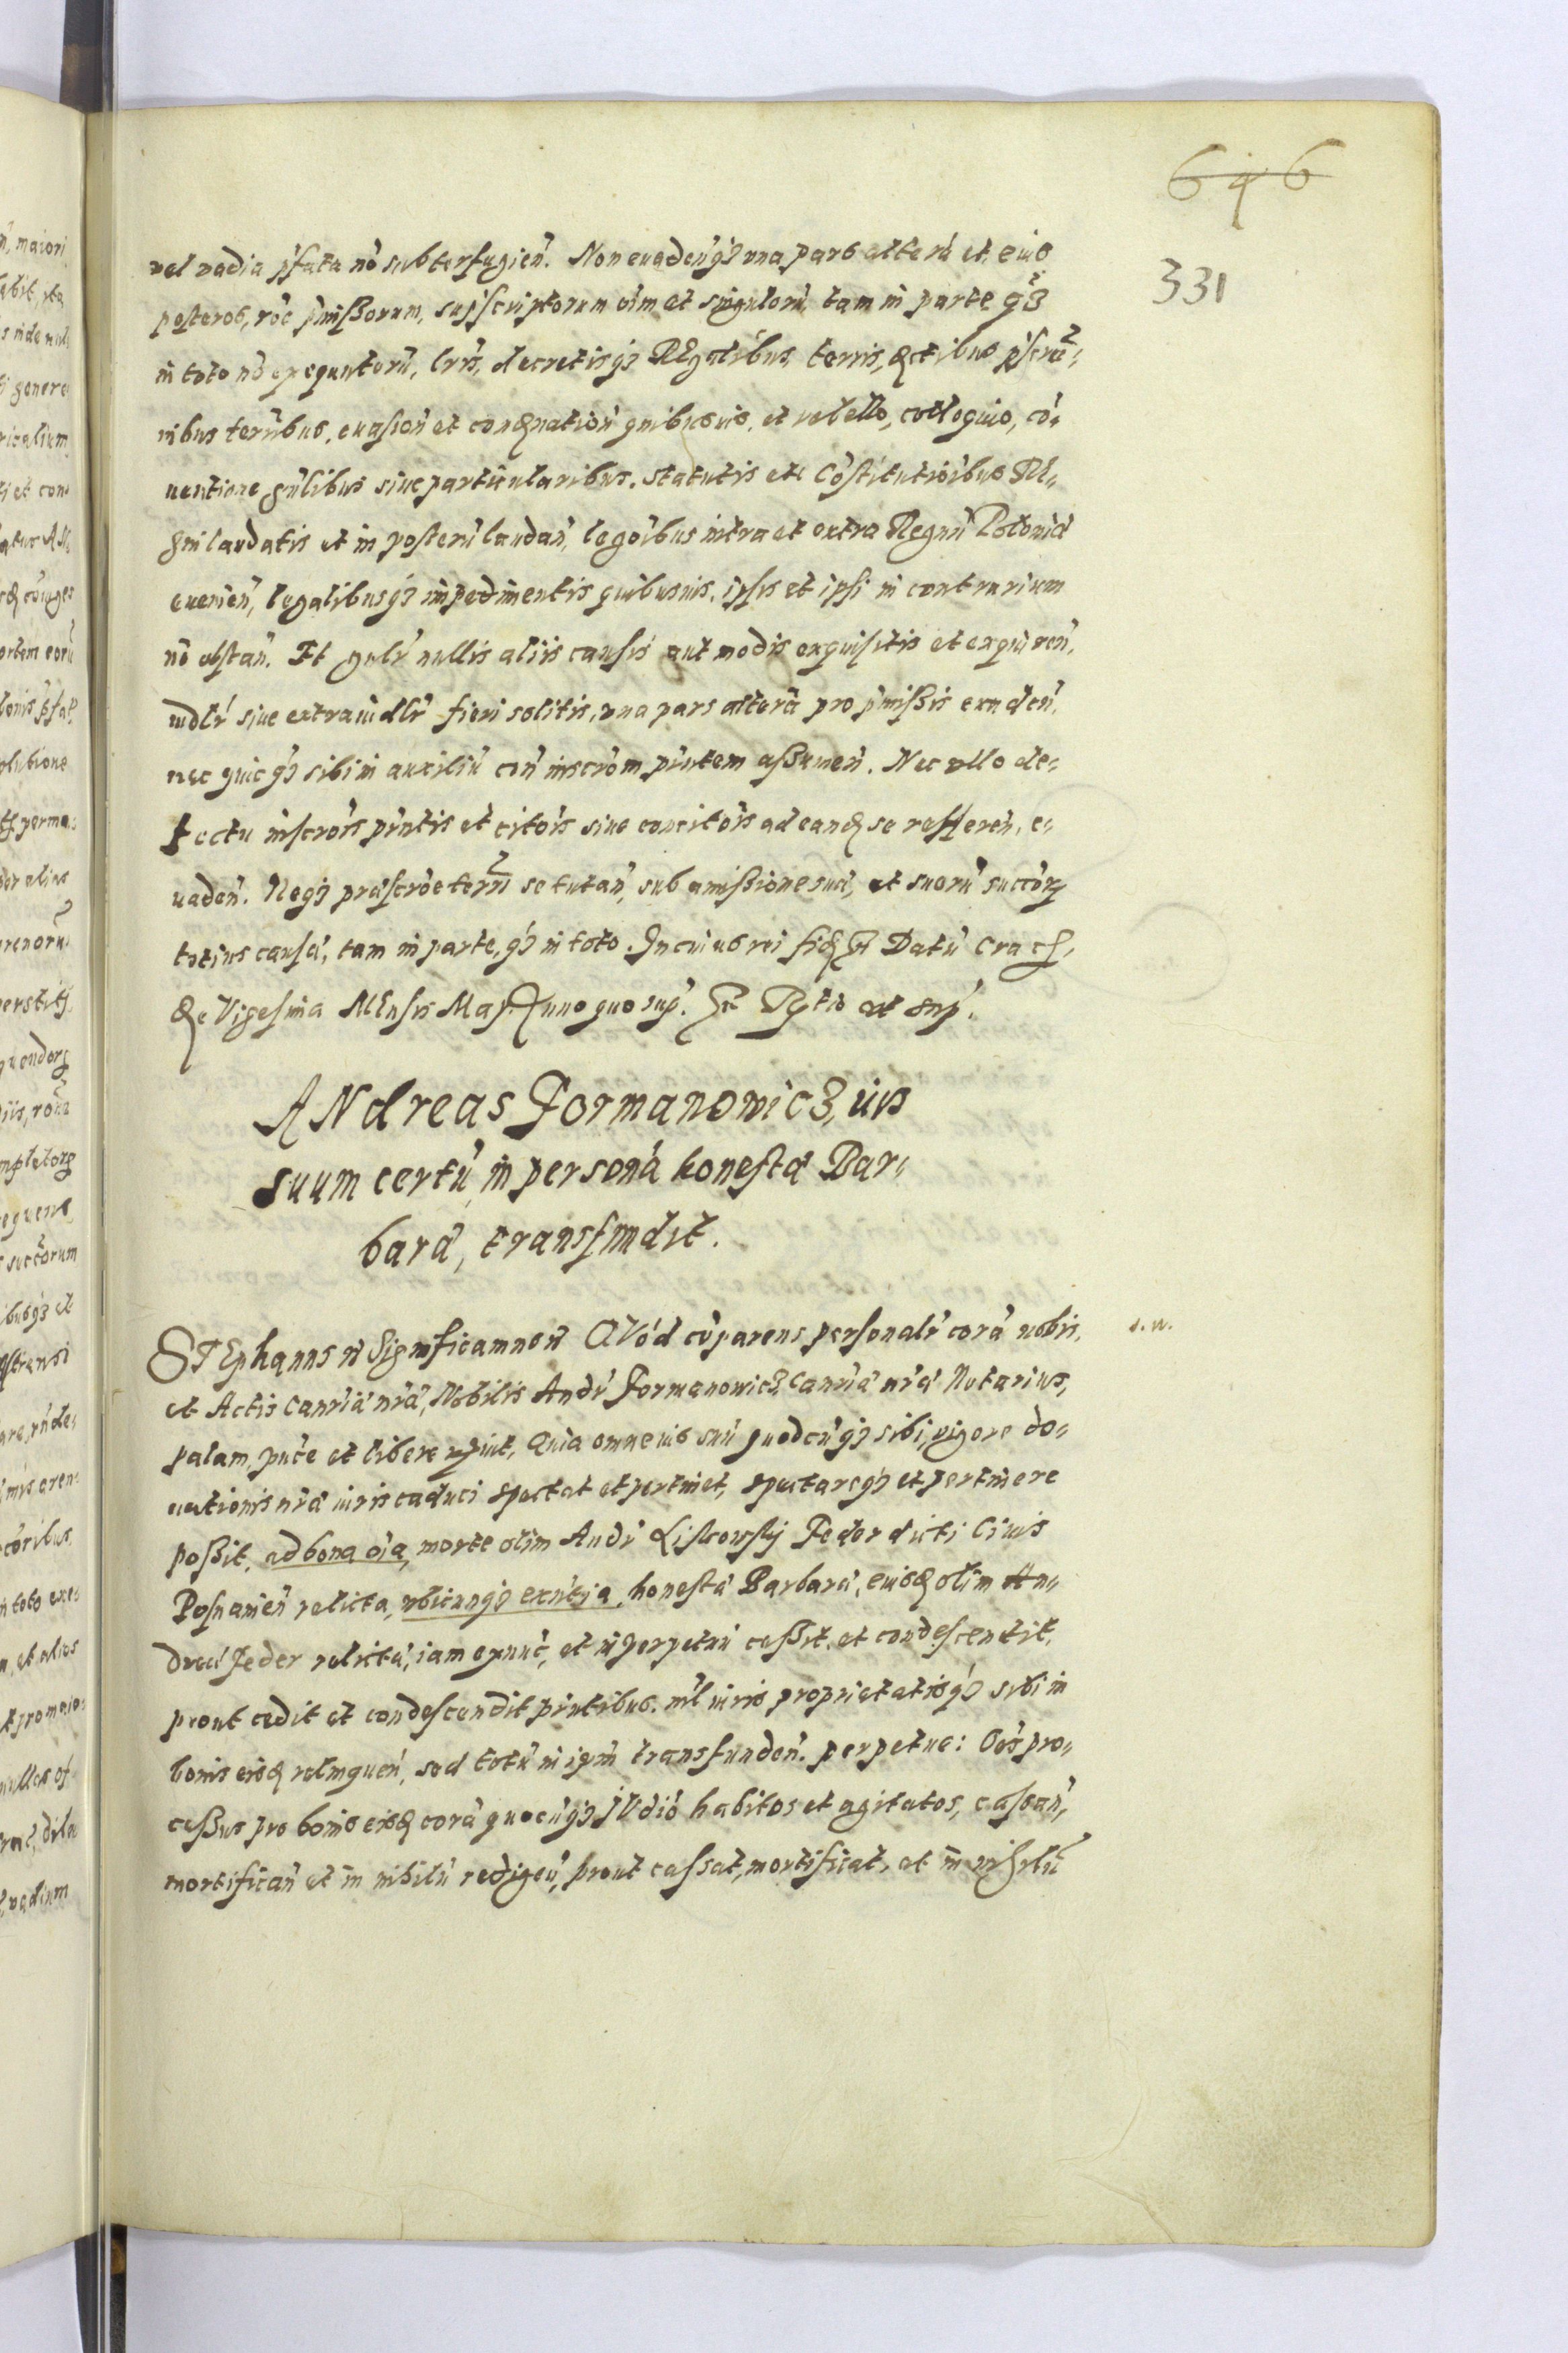 646
331
vel vadia pſata nō subterfugień. Non evadenq́ꝫ una pars alterā et eius
posteros, rōe p̄miſsorum, supſcriptorum oīm et singulorū, tam in parte q̄ꝫ
in toto nō exequutorū, lrīs, decretisq́ꝫ REgalibus, terris,
nibus ter̄ibus, evasioń et quibusvis, et vel ello, colloquio, cō-
ventione gn̄libus sive particularibus. Statutis et Cōstitutiōibus RE-
gni laudatis et in posterū laudań, legōibus intra et extra Regnū Poloniæ
evenień, legalibusq́ꝫ impedimentis quibusvis, ipsis et ipsi in contrarium
nō obstań. Et gnlr̄ nullis aliis causis aut modis exquisitis et exquireń,
iudlr̄ sive extraiudlr̄ fieri solitis, una pars alterā pro p̄miſsis evadeń,
nec quicq́ꝫ sibi in auxiliū con̄ inscrōm pn̄tem aſsumeń. Nec ullo de-
fectu inscrōis pn̄tis et citōis sive concitōis ad eand se reffereń, e-
vadeń. Neqꝫ præscrōe ter̄ri se tutań, sub amiſsione suā, et suorū succōrꝝ
totius causæ, tam in parte, q́ꝫ in toto. In cuius rei fid Datū Crac
die Vigesima MEnsis Maÿ Anno quo sup̄. ut sup̄.
ANdreas Formanowicz, ius
suum certū, in personā honestæ Bar-
baræ, transfundit.
STEphanus Significamus QVód cōparens personalr̄ corā nobis, s. w.
et Actis Canr̄iæ nr̄æ, Nobilis Andr̄ Formanowicz Canr̄iæ nr̄æ Notarius,
palam, pub̄ce et libere Quia omne ius suū quodcūq́ꝫ sibi, vigore do-
nationis nr̄æ iuris caduci spectat et pertinet, spectareq́ꝫ et pertinere
poſsit, ad bona oīa, morte olim Andr̄ Liſkowſky Feder dicti Civis
Posnanień relicta, ubicunq́ꝫ exn̄tia, honestæ Barbaræ, eiusd olim An-
dreæ Feder relictæ, iam exnūc, et in perpetuū ceſsit, et condeſcendit,
prout cedit et condeſcendit pn̄tibus. nīl iuris proprietatisq́ꝫ sibi in
bonis eisd relinqueń, sed totū in ipm̄ transfundeń. perpetue: Oēs pro-
ceſsus pro bonis eisd corā quocūq́ꝫ jUdiō habitos et agitatos, casań,
mortificań et in nihilū redigeń, prout caſsat, mortificat, et in nihilū